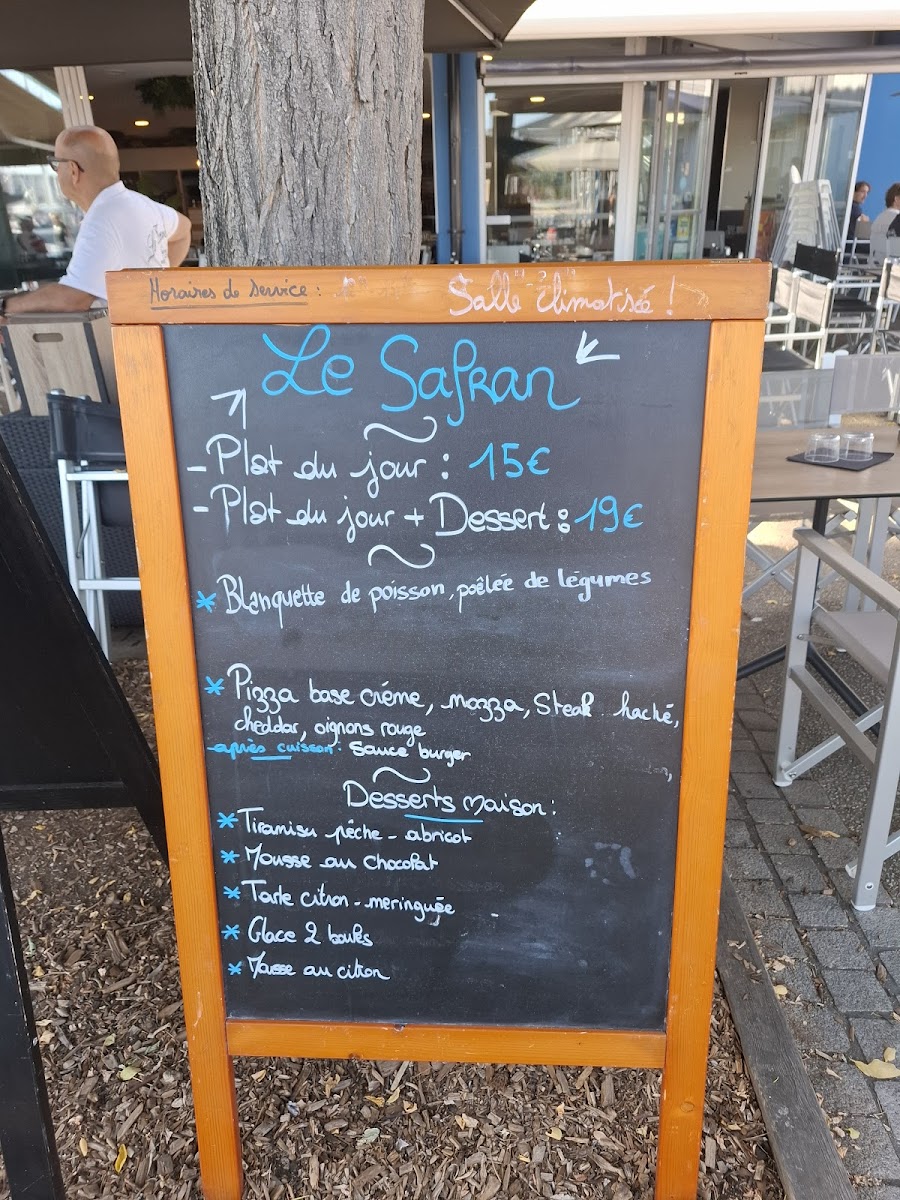 Horaires de service :
Salle climatisée !
Le Safran
- Plat du jour : 15€
- Plat du jour + Dessert : 19€
* Blanquette de poisson, poêlée de légumes
* Pizza base crème, mozza, Steak haché,
cheddar, oignons rouge
après cuisson : Sauce burger
Desserts maison :
* Tiramisu pêche - abricot
* Mousse au chocolat
* Tarte citron - meringuée
* Glace 2 boules
* Mousse au citron